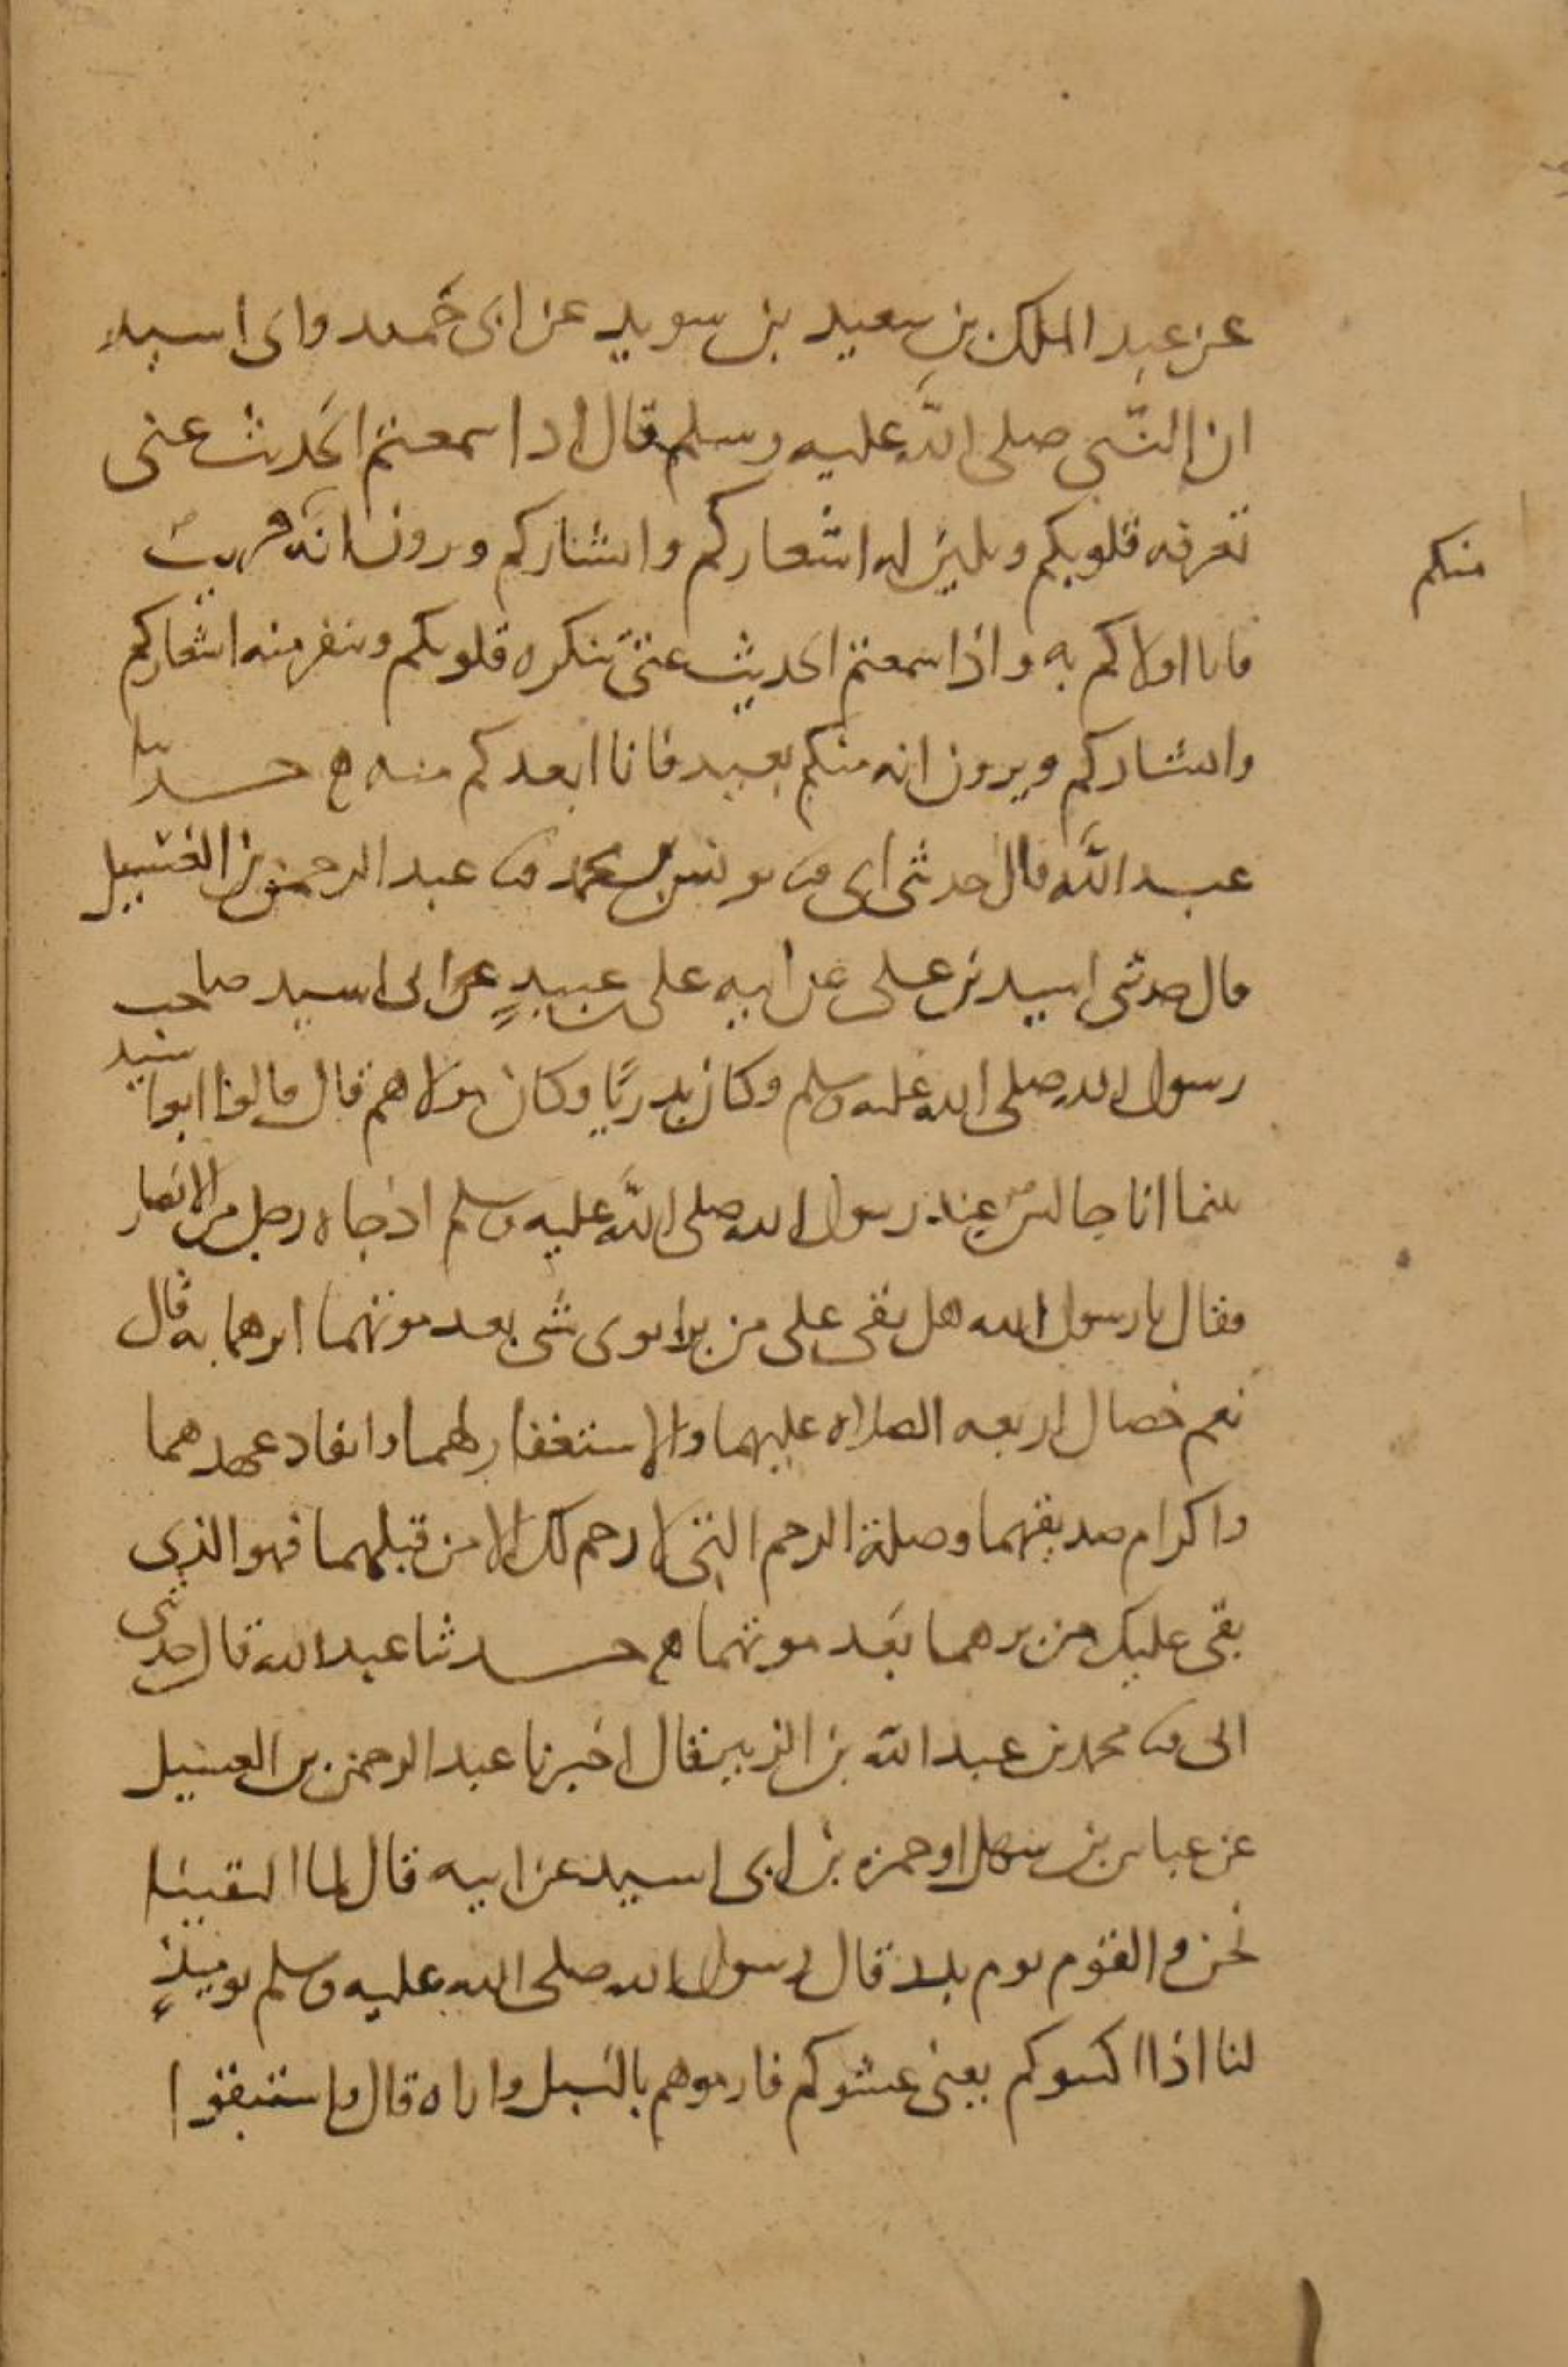 عن عبد الملك بن سعيد بن سويد عن ابى حميد وابى اسيد
ان النبى صلى الله عليه وسلم قال اذا سمعتم الحديث عنى
تعرفه قلوبكم وتلين له اشعاركم وابشاركم وترون انه قريب
منكم
فانا اولاكم به واذا سمعتم الحديث عنى تنكره قلوبكم وتنفر منه اشعاركم
وابشاركم ويرون انه منكم بعيد فانا ابعدكم منه ح حدثنا
عبد الله قال حدثنى ابى ثنا يونس بن محمد ثنا عبد الرحمن بن الغسيل
قال حدثنى اسيد بن على عن ابيه على بن عبيد عن ابى اسيد صاحب
رسول الله صلى الله عليه وسلم وكان بدريا وكان مولاهم قال قال ابو اسيد
بينما انا جالس عند رسول الله صلى الله عليه وسلم اذ جاه رجل من الانصار
فقال يا رسول الله هل بقى على من بر ابوى شى بعد موتهما ابرهما به قال
نعم خصال اربعه الصلاه عليهما والاستغفار لهما وانفاد عهدهما
واكرام صديقهما وصلة الرحم التى لا رحم لك الا من قبلهما فهو الذى
بقى عليك من برهما بعد موتهما ح حدثنا عبد الله قال حدثنى
ابى ثنا محمد بن عبد الله بن الزبير قال اخبرنا عبد الرحمن بن الغسيل
عن عباس بن سهل او حمزه بن ابى اسيد عن ابيه قال لما التقينا
نحن والقوم يوم بدر قال رسول الله صلى الله عليه وسلم يوميذ
لنا اذا اكثبوكم يعنى غشوكم فارموهم بالنبل واراه قال واستبقوا